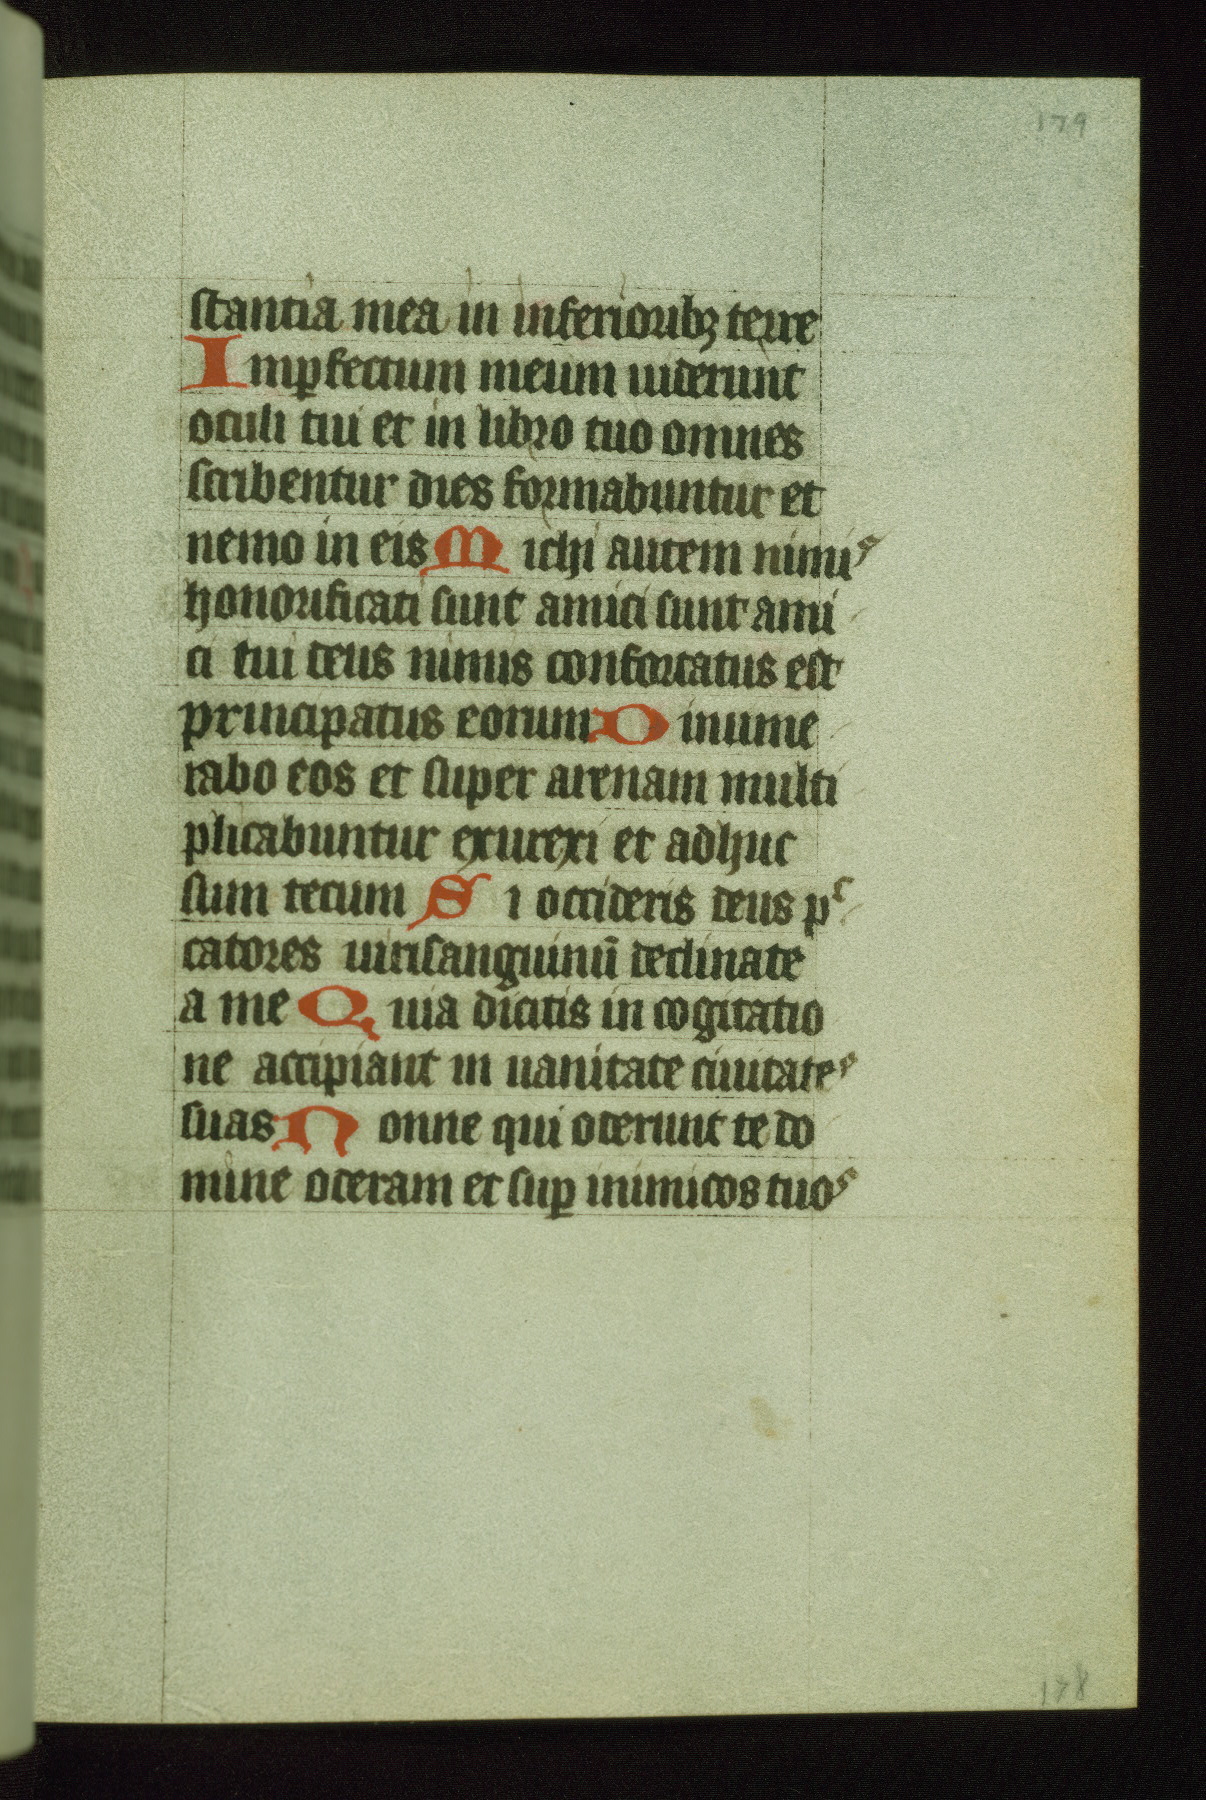 179
stantia mea in inferioribꝫ terre
Imꝑfectum meum uiderunt
oculi tui et in libro tuo omnes
scribentur dies formabuntur et
nemo in eis Michi autem nimis
honorificati sunt amici sunt ami
ci tui deus nimis confortatus est
principatus eorum Dinume
rabo eos et super arenam multi
plicabuntur exurexi et adhuc
sum tecum Si occideris deus pc
catores uiri sanguinū declinate
a me Quia dicitis in cogitatio
ne accipiant in uanitate ciuitates
suas Nonne qui oderunt te do
mine oderam et suꝑ inimicos tuos
178